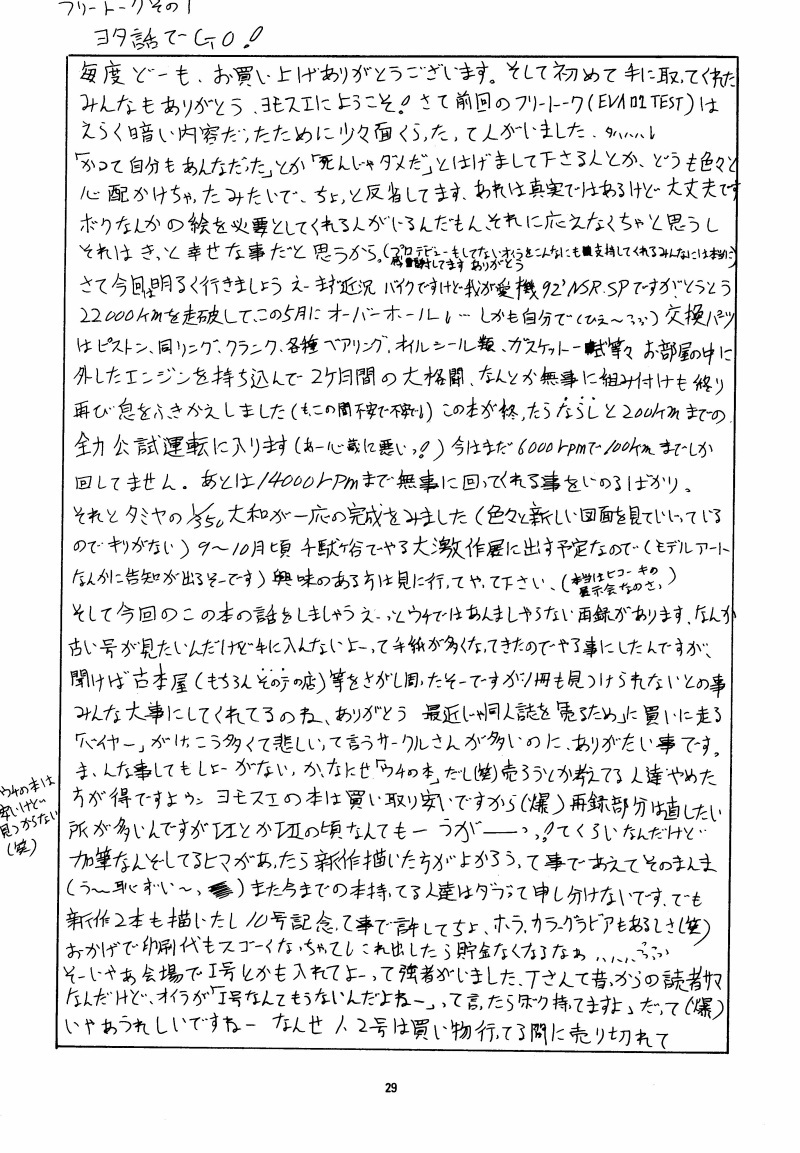 フリートークその1
ヨタ話でGO!
毎度どーも、お買い上げありがとうございます。そして初めて手に取ってくれた
みんなもありがとう、ヨモスエにようこそ!さて前回のフリートーク(EVA 02 TEST)は
えらく暗い内容だったために少々面くらった、て人がいました、タハハハハ
「かつて自分もあんなだった」とか「死んじゃダメだ」とはげまして下さる人とか、どうも色々と
心配かけちゃったみたいで、ちょっと反省してます、あれは真実ではあるけど大丈夫です
ボクなんかの絵を必要としてくれる人がいるんだもん、それに応えなくちゃと思うし
それはきっと幸せな事だと思うから。(プロデビューもしてないオイラをこんなにも支持してくれるみんなには本当に
感謝してます ありがとう
さて今回は明るく行きましょう えーまず近況 バイクですけど我が愛機92'NSR.SPですがとうとう
22000Kmを走破して、この5月にオーバーホールし… しかも自分で(ひぇ〜ろろ) 交換パーツ
はピストン、同リング、クランク、各種ベアリング、オイルシール類、ガスケット一式等々 お部屋の中に
外したエンジンを持ち込んで2ケ月間の大格闘、なんとか無事に組み付けも終り
再び息をふきかえしました(もうこの間不安で不安で) この本が終ったらならしと200Kmまでの
全力公試運転に入ります(あー心蔵に悪いっ!) 今はまだ6000rpmで100Kmまでしか
回してません。あとは14000rpmまで無事に回ってくれる事をいのるばかり。
それとタミヤの1/350大和が一応の完成をみました(色々と新しい図面を見ていじっている
のでキリがない) 9〜10月頃 千駄ヶ谷でやる大激作展に出す予定なので(モデルアート
なんかに告知が出るそーです) 興味のある方は見に行ってやって下さい、(本当はヒコーキの
展示会なのさっ)
そして今回のこの本の話をしましゃう えーっとウチではあんましやらない再録があります、なんか
古い号が見たいんだけど手に入んないよーって手紙が多くなってきたのでやる事にしたんですが、
聞けば古本屋(もちろんその手の店)等をさがし周ったそーですが1冊も見つけられないとの事
みんな大事にしてくれてるのね、ありがとう 最近じゃ同人誌を「売るために」買いに走る
「バイヤー」がけっこう多くて悲しいって言うサークルさんが多いのに、ありがたい事です。
ま、んな事してもしょーがないか、なにせ「ウチの本」だし(笑)売ろうとか考えてる人達やめた
方が得ですよウン ヨモスエの本は買い取り安いですから(爆) 再録部分は直したい
所が多いんですがI号とかII号の頃なんてもー うがーーっっ!てくらいなんだけど
加筆なんそしてるヒマがあったら新作描いた方がよかろうって事であえてそのまんま
(う〜恥ずい〜っ) また今までの本持ってる人達はダブって申し分けないです、でも
新作2本も描いたし10号記念って事で許してちょ、ホラ、カラーグラビアもあるしさ(笑)
おかげで印刷代もスゴーくなっちゃてしこれ出したら貯金なくなるなぁ……ろふふ
そーいやあ会場でI号とかも入れてよーって強者がいました、Tさんて昔っからの読者サマ
なんだけど、オイラが「I号なんてもうないんだよねー」って言ったら「ボク持てますよ」だって(爆)
いやあうれしいですねー なんせ1、2号は買い物行ってる間に売り切れて
ウチの本は
安いけど
見つからない
(笑)
29